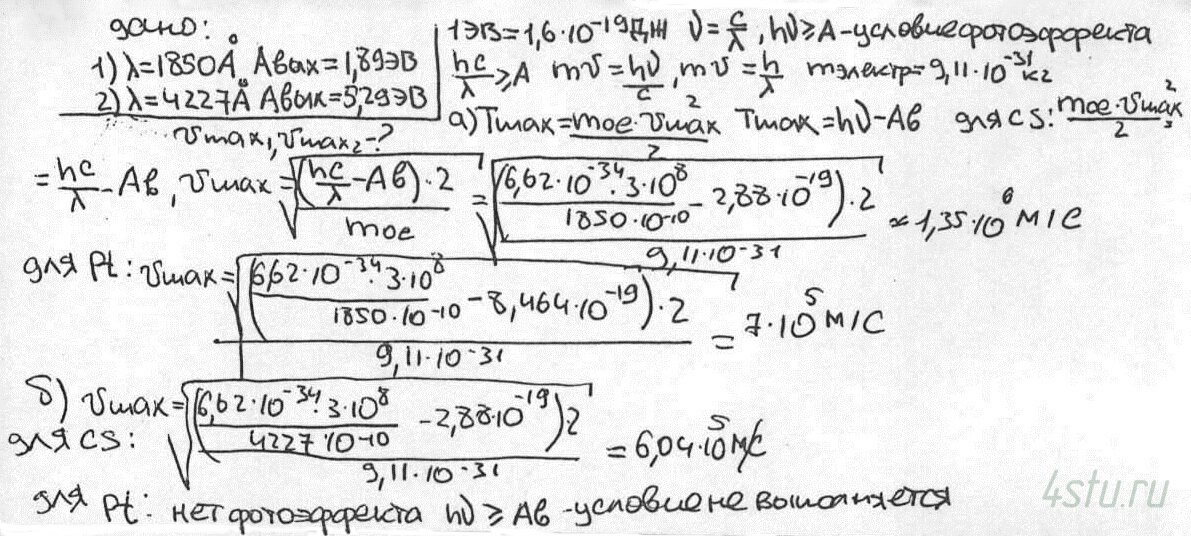 дано:
1) λ=1850Å Aвых=1,89эВ
2) λ=4227Å Aвых=5,29эВ
vmax₁, vmax₂-?
1эВ=1,6·10⁻¹⁹Дж ν=c/λ, hν≥A-условие фотоэффекта
hc/λ≥A mv=hν/c, mv=h/λ mэлектр=9,11·10⁻³¹кг
а) Tmax=moe·vmax²/2 Tmax=hν-Aв для CS: moe·vmax²/2=
=hc/λ-Aв, vmax=√((hc/λ-Aв)·2/moe)=√((6,62·10⁻³⁴·3·10⁸/1850·10⁻¹⁰-2,88·10⁻¹⁹)·2/9,11·10⁻³¹)≈1,35·10⁶м/с
для Pt: vmax=√((6,62·10⁻³⁴·3·10⁸/1850·10⁻¹⁰-8,464·10⁻¹⁹)·2/9,11·10⁻³¹)=7·10⁵м/с
б) vmax=√((6,62·10⁻³⁴·3·10⁸/4227·10⁻¹⁰-2,88·10⁻¹⁹)·2/9,11·10⁻³¹)=6,04·10⁵м/с
для CS:
для Pt: нет фотоэффекта hν≥Aв-условие не выполняется
4stu.ru